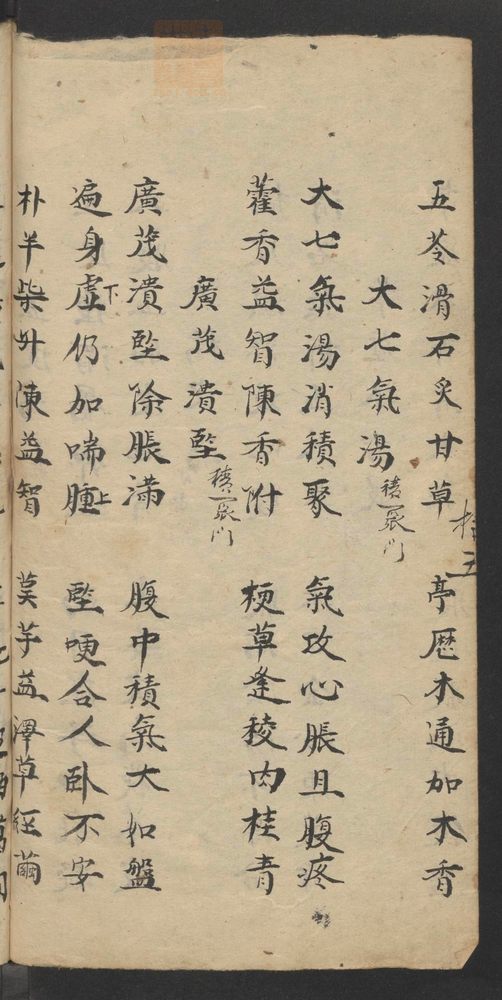 五苓滑石炙甘草 亭厯木通加木香
大七氣湯 積聚門
大七氣湯消積聚 氣攻心脹且腹疼
藿香益智陳香附 梗草蓬稜肉桂青
廣茂潰堅 積聚門
廣茂潰堅除脹滿 腹中積氣大如盤
遍身虛下仍加喘腫上 堅哽令人臥不安
朴半柴升陳益智 茣芋益澤草紅